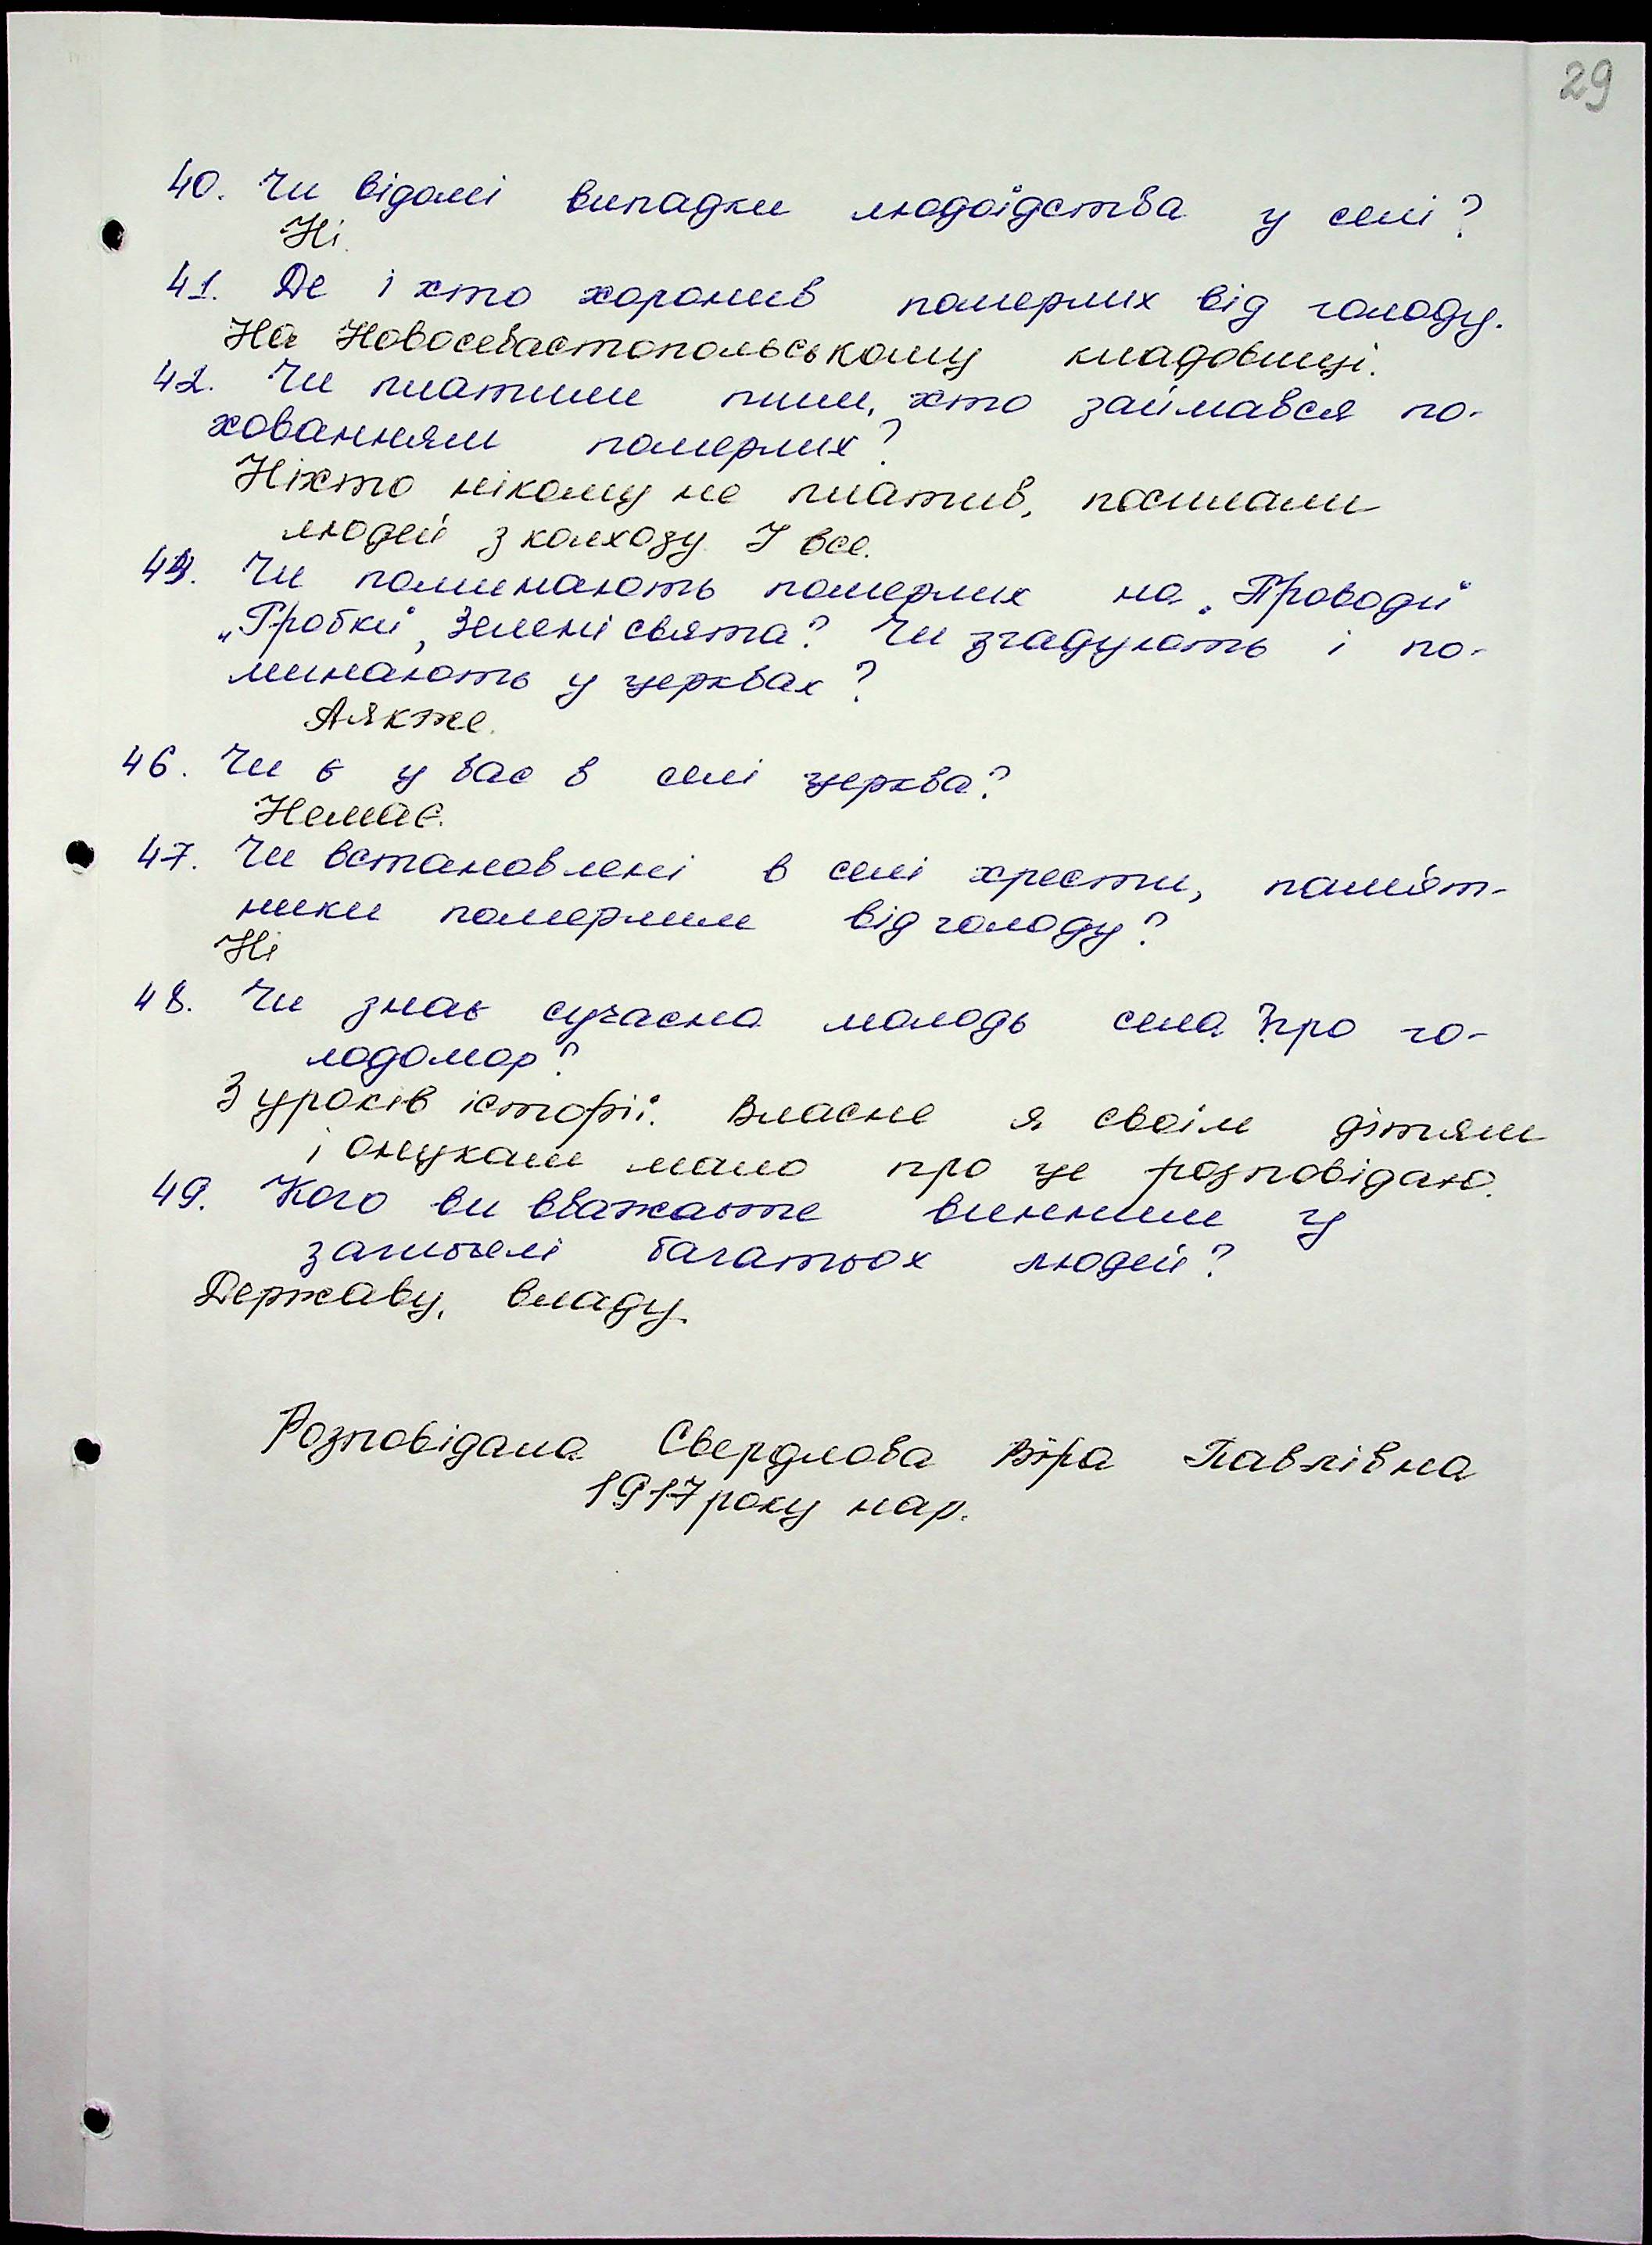 29
40. Чи відомі випадки людоїдства у селі?
Ні.
41. Де і хто хоронив померлих від голоду.
На Новосевастопольському кладовищі.
42. Чи платили тим, хто займався по-
хованням померлих?
Ніхто нікому не платив, посилали
людей з колхозу. І все.
Чи поминають померлих на „Проводи"
„Гробки", Зелені свята? Чи згадують і по-
минають у церквах?
Аякже.
46. Чи є у вас в селі церква?
Немає.
47. Чи встановлені в селі хрести, пам'ят-
ники померлим від голоду?
Ні
48. Чи знає сучасна молодь села про го-
лодомор?
З уроків історії. Власне я своїм дітям
і онукам мало про це розповідаю.
49. Кого ви вважаєте винним у
загибелі багатьох людей?
Державу, владу.
Розповідала Свердлова Віра Павлівна
1917 року нар.